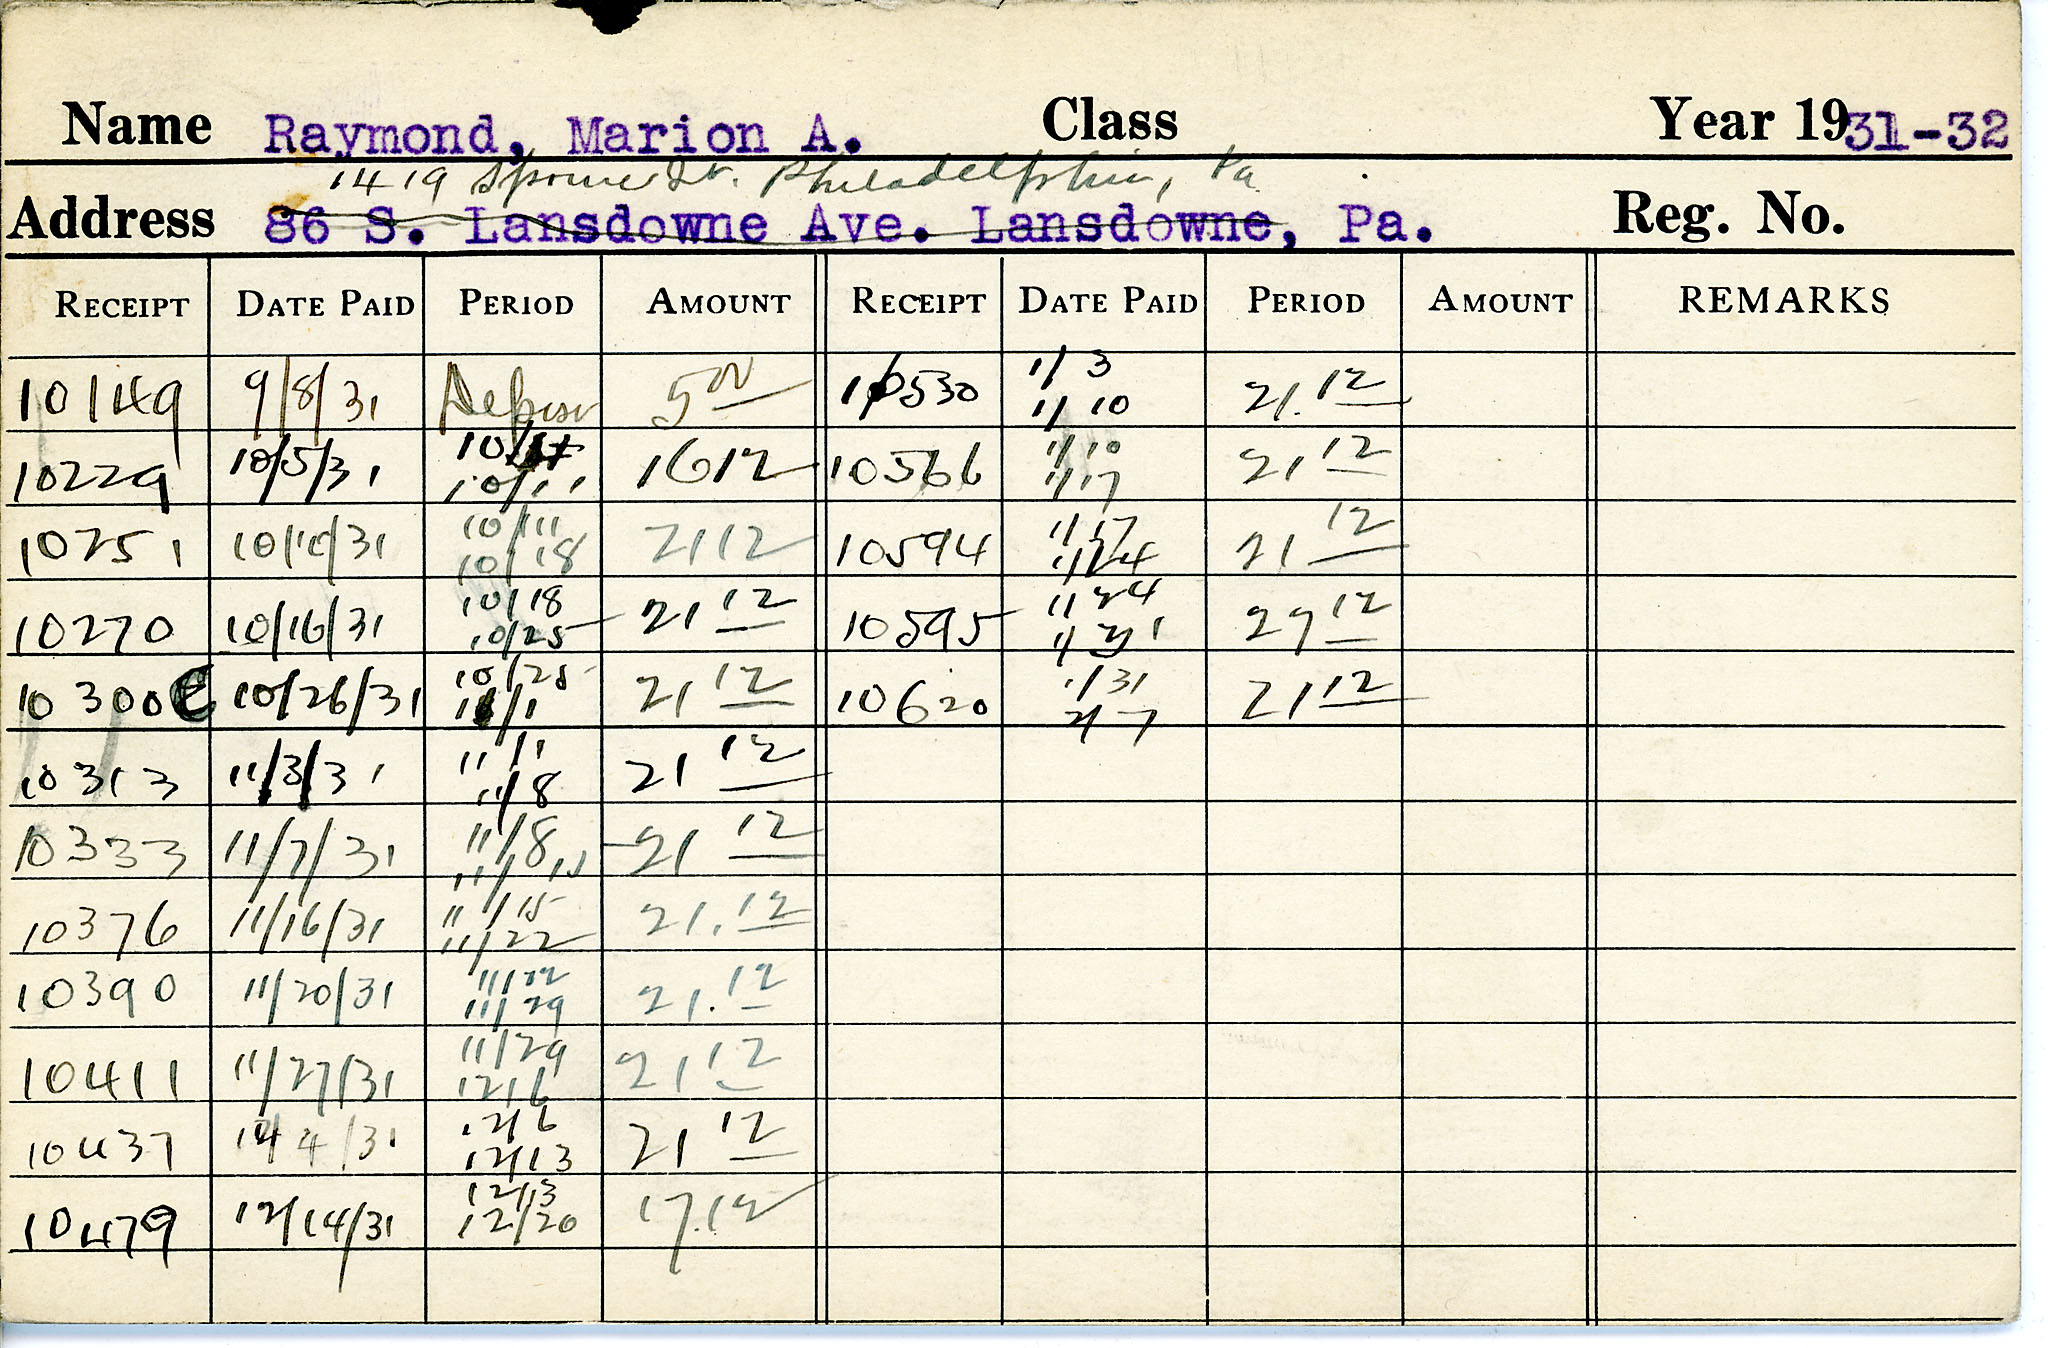 Name Raymond, Marion A. Class Year 1931-32
1419 Spruce St. Philadelphia, Pa
Address 86 S. Lansdowne Ave. Lansdowne, Pa. Reg. No.
RECEIPT DATE PAID PERIOD AMOUNT RECEIPT DATE PAID PERIOD AMOUNT REMARKS
10149 9/8/31 Deposit 5 00 10530 1/3 1/10 21.12
10229 10/5/31 10/11 1612 10566 1/10 1/17 21 12
10251 10/10/31 10/11 10/18 2112 10594 1/17 1/24 21 12
10270 10/16/31 10/18 10/25 21 12 10595 1/24 1/31 27 12
10300 10/26/31 10/25 11/1 21 12 10620 1/31 2/7 21 12
10313 11/3/31 11/1 11/8 21 12
10333 11/7/31 11/8 11/15 21 12
10376 11/16/31 11/15 11/22 21.12
10390 11/20/31 11/22 11/29 21.12
10411 11/27/31 11/29 12/6 21 12
10437 12/4/31 12/6 12/13 21 12
10479 12/14/31 12/13 12/20 17.12